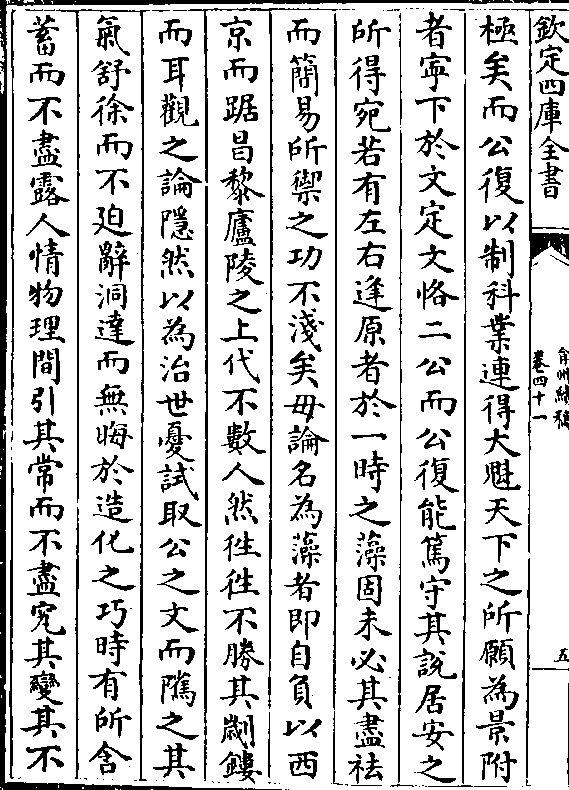 欽定四庫全書
弇州續稿
卷四十一
五
極矣而公復以制科業連得大魁天下之所願為景附
者寧下於文定文恪二公而公復能篤守其説居安之
所得宛若有左右逢原者於一時之藻固未必其盡袪
而簡易所禦之功不淺矣毋論名為藻者即自負以西
京而踞昌黎廬陵之上代不數人然徃徃不勝其劌鏤
而耳觀之論隱然以為治世憂試取公之文而隲之其
氣舒徐而不廹辭洞達而無晦於造化之巧時有所含
蓄而不盡露人情物理間引其常而不盡究其變其不